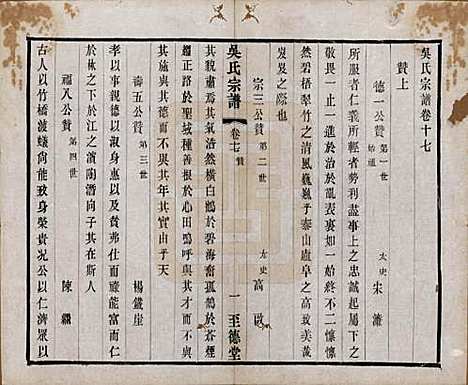 吳氏宗譜卷十七
贊上
德一公贊 第一世 始遷 太史 宋濂
所服者仁義所輕者勢利盡事上之忠誠起居下之
敬畏一止一進於治於亂表裏如一始終不二懍懍
然碧梧翠竹之清風巍巍乎泰山盧阜之高
岌岌之際也
宗三公贊 第二世 太史 高啟
其貌肅肅其行以純橫白鶴於碧海奮孤鶱於蒼煙
經正路於聖域種善根於心田嗚呼與其貴而不實
其施與其德而不與其年將求其故由乎天
吳氏宗譜 卷十七 贊 一 至德堂
壽五公贊 第三世 楊鐵崖
孝以事親恭以淑身惠及於貴弗仕而尊能富而仁
於林之下於江之濱陶潛向子其在斯人
福八公贊 第四世 陳繼
古人以竹橋渡蟻尚能致身榮貴況公以仁濟眾以